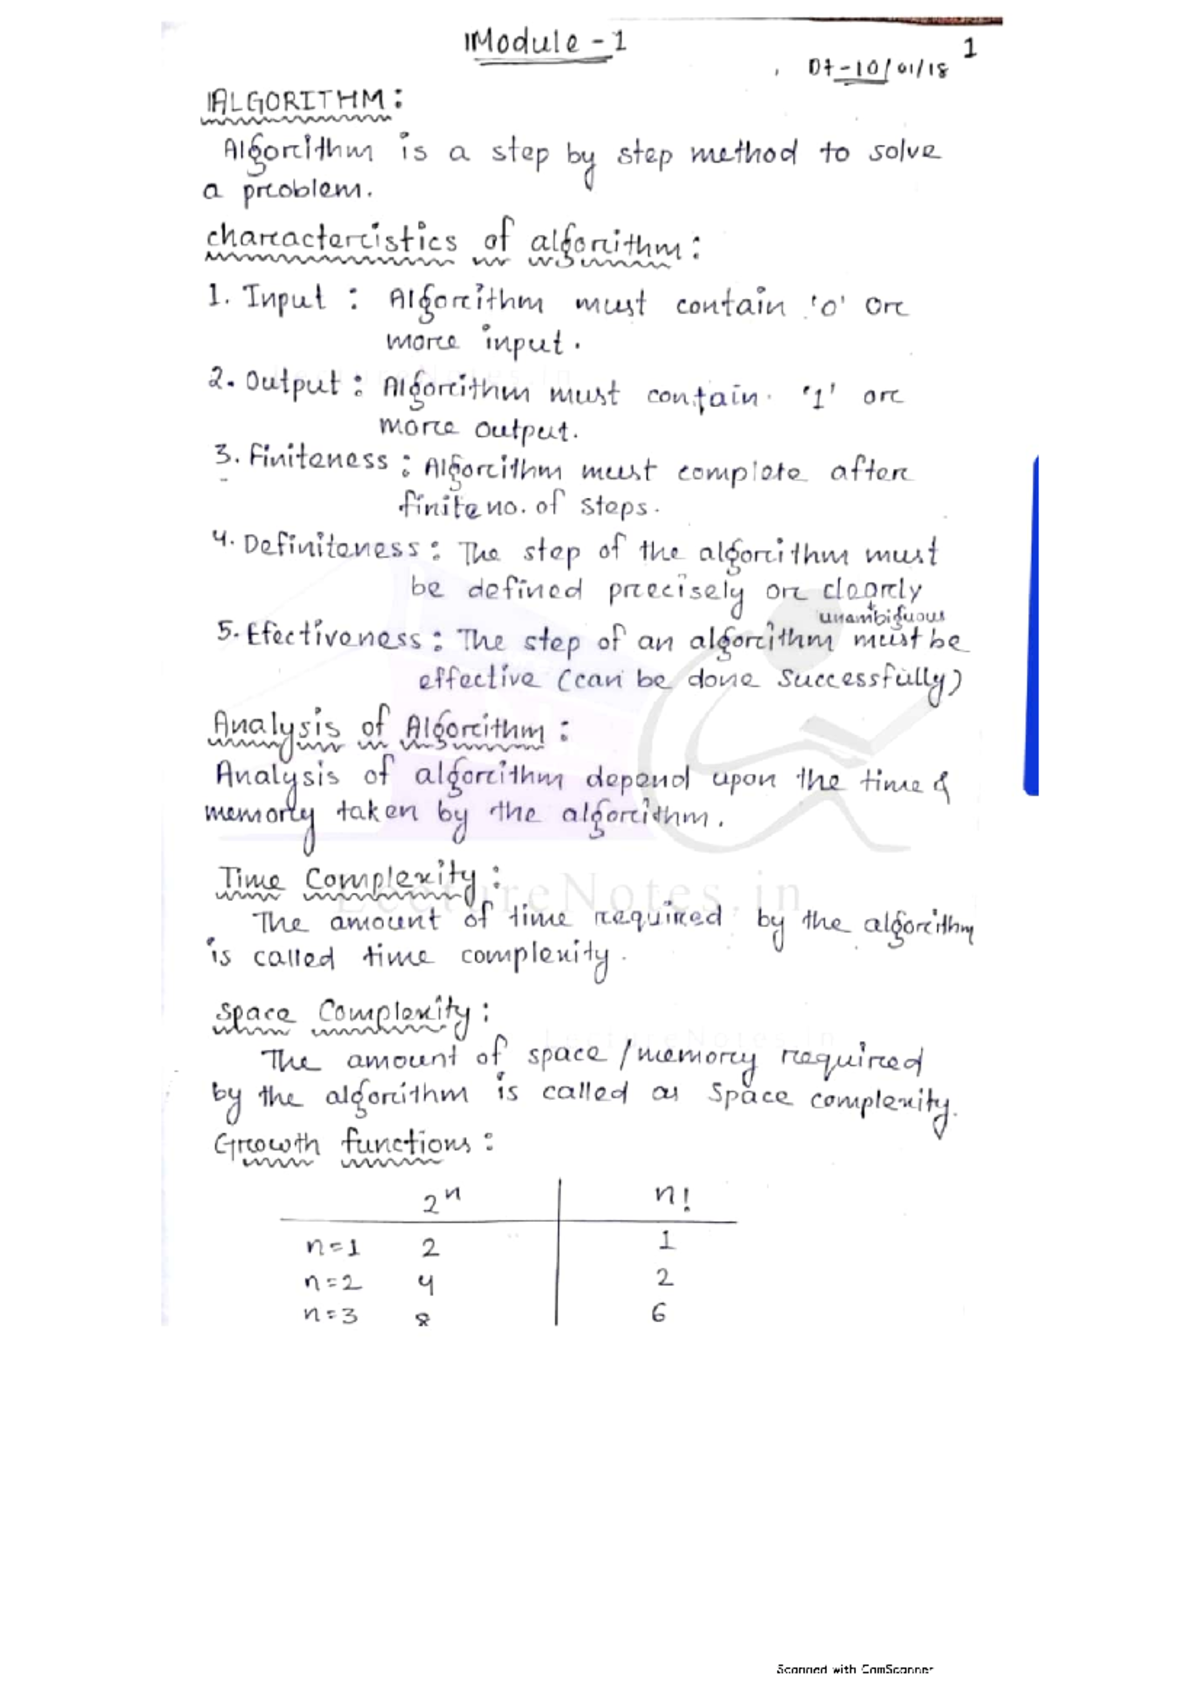 Module - 1
1
Dt-10/01/18
ALGORITHM:
Algorithm is a step by step method to solve
a problem.
characteristics of algorithm:
1. Input : Algorithm must contain '0' or
more input.
2. Output : Algorithm must contain '1' or
more output.
3. Finiteness : Algorithm must complete after
finite no. of steps.
4. Definiteness : The step of the algorithm must
be defined precisely or clearly
unambiguous
5. Efectiveness : The step of an algorithm must be
effective (can be done successfully)
Analysis of Algorithm :
Analysis of algorithm depend upon the time &
memory taken by the algorithm.
Time Complexity :
The amount of time required by the algorithm
is called time complexity.
Space Complexity :
The amount of space / memory required
by the algorithm is called as space complexity.
Growth functions :
2^n n!
n=1 2 1
n=2 4 2
n=3 8 6
LectureNotes.in
LectureNotes.in
Scanned with CamScanner